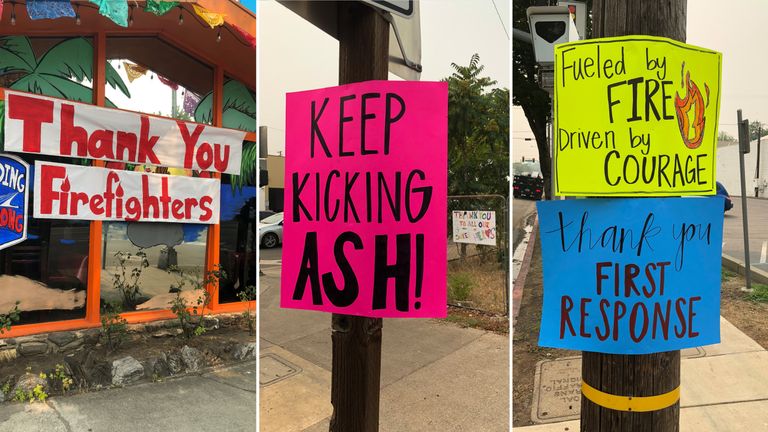 Thank You
Firefighters
DING
ONG
KEEP
KICKING
ASH!
THANK YOU
TO ALL OUR
Fueled by
FIRE
Driven by
COURAGE
thank you
FIRST
RESPONSE